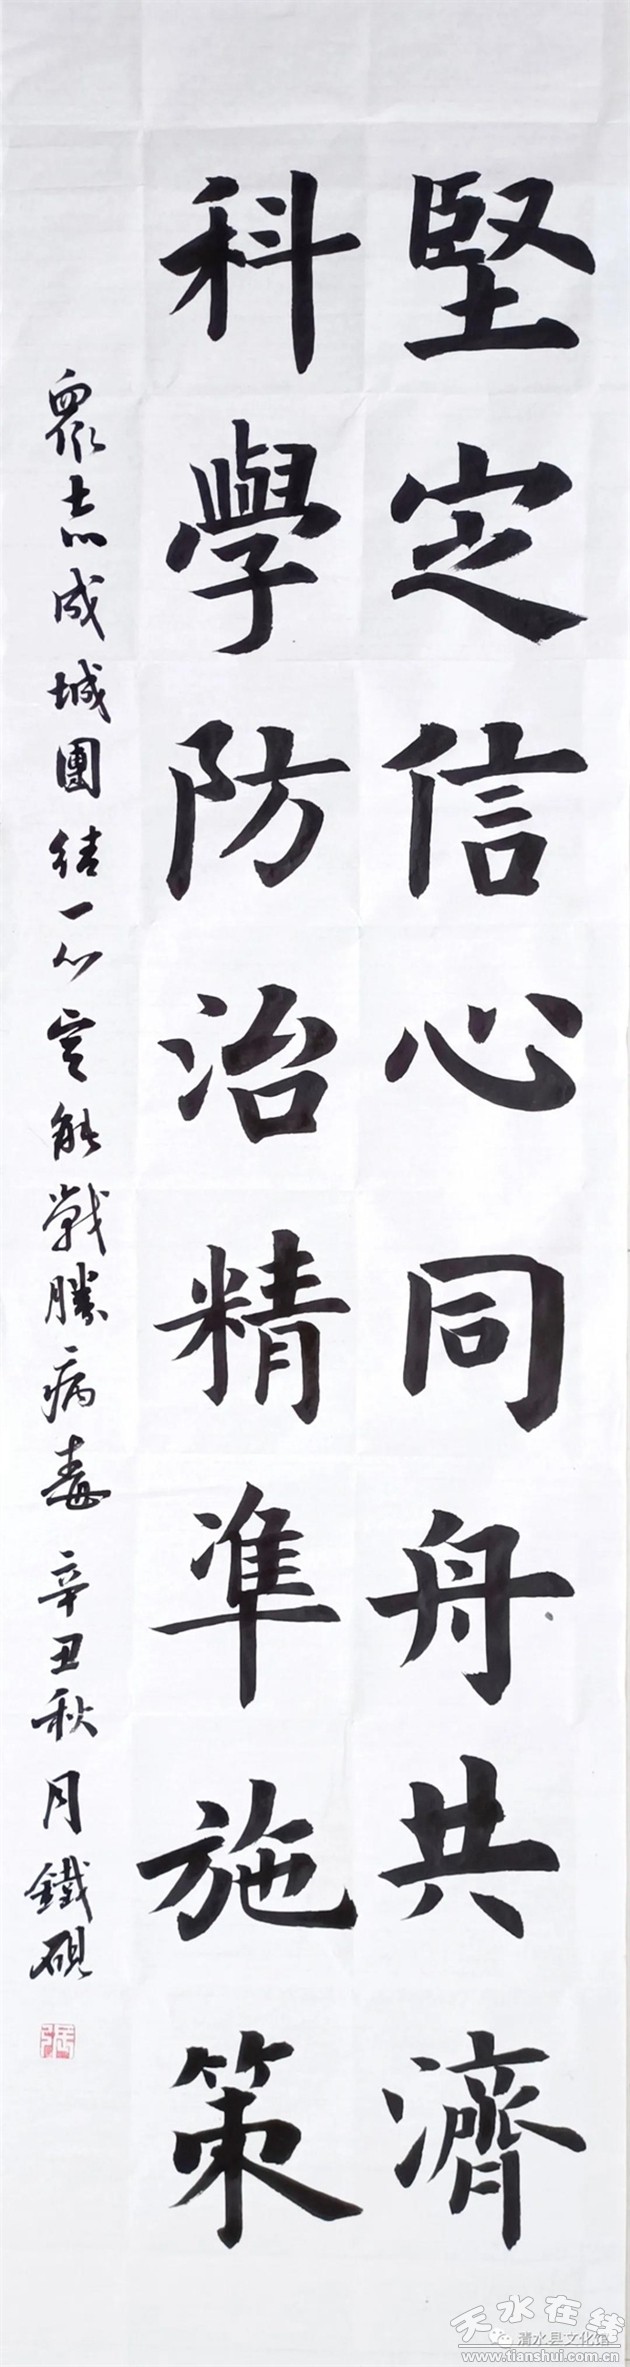 堅定信心同舟共濟
科學防治精準施策
眾志成城團結一心定能戰勝病毒 辛丑秋月 鐵硯
張
天水在线
清水县文化馆
www.tianshui.com.cn